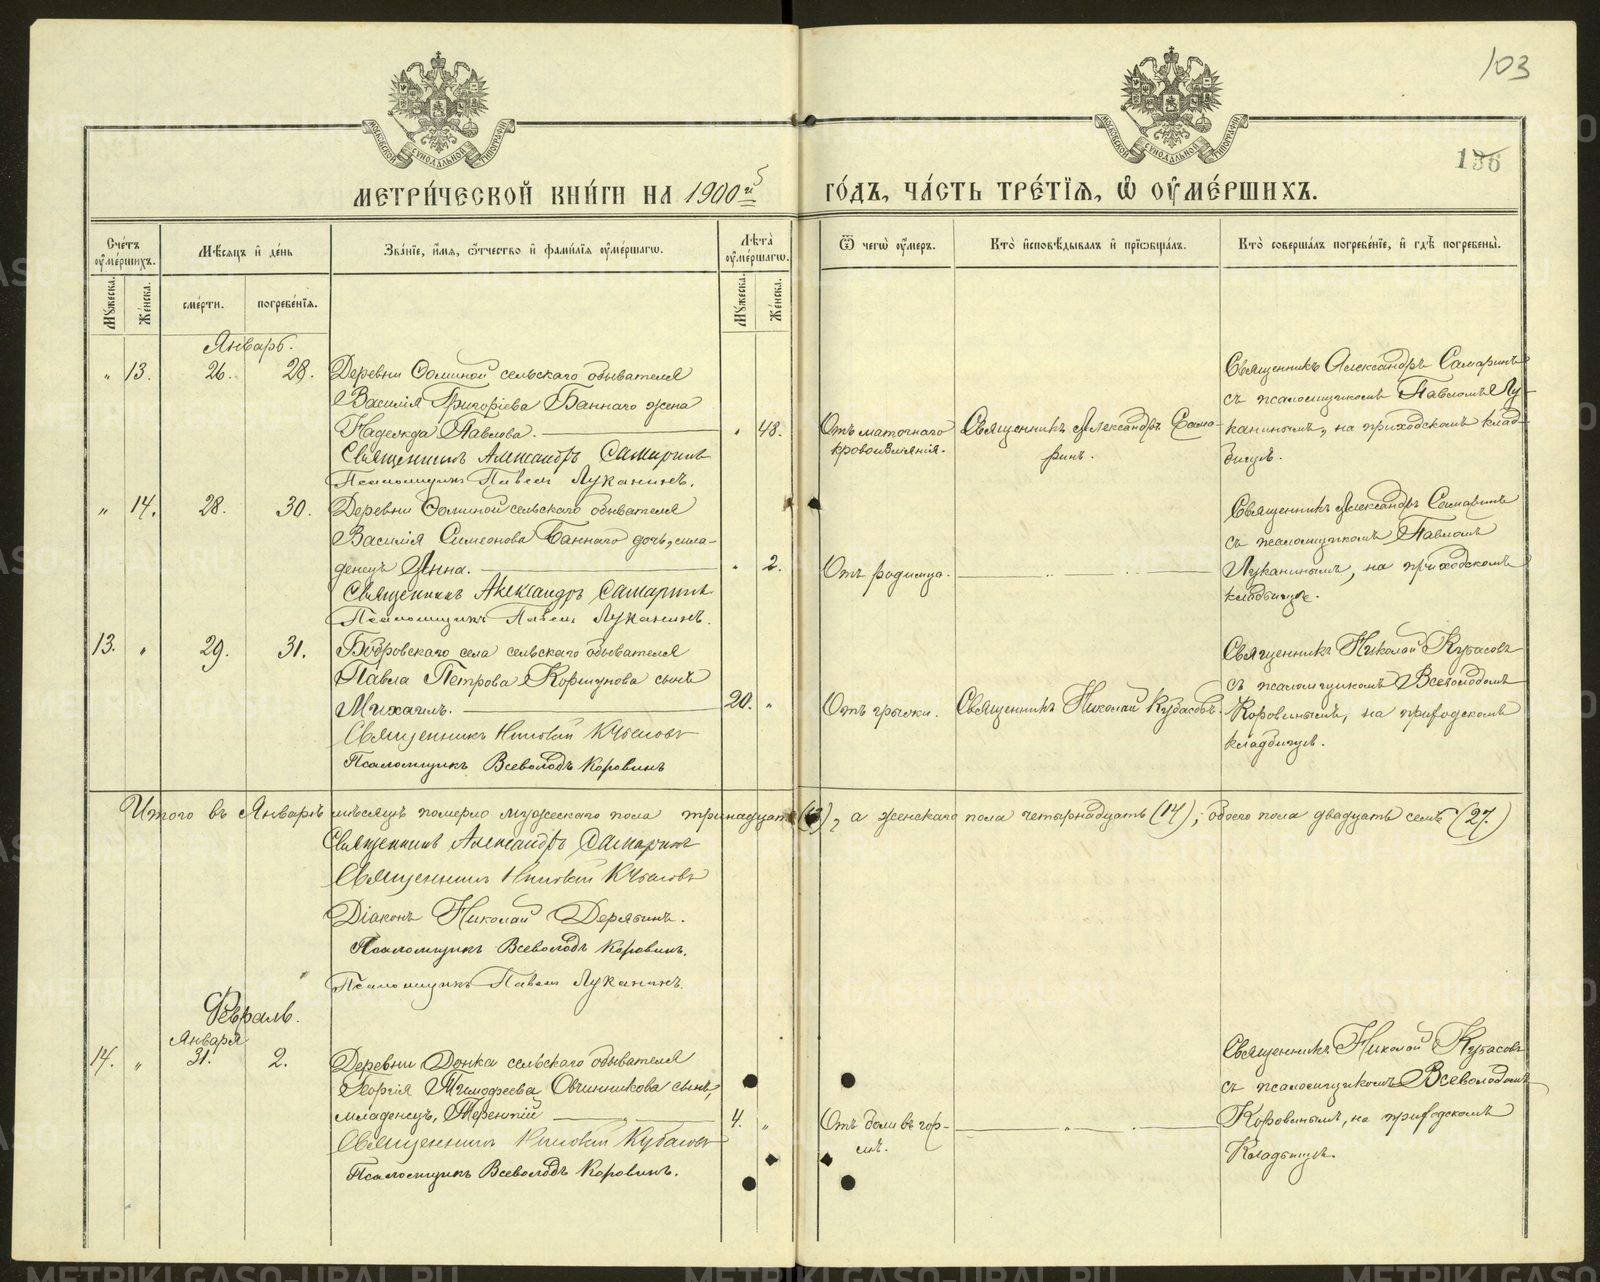 103
136
МЕТРИЧЕСКОЙ КНИГИ НА 1900й ГОДЪ, ЧАСТЬ ТРЕТІЯ, Ѽ ОУМЕРШИХЪ.
Счетъ оумершихъ.
Мѣсяцъ и день
Званіе, имя, ѿчество и фамилія оумершагѡ.
Лѣта оумершагѡ.
Ѿ чегѡ оумеръ.
Кто исповѣдывалъ и пріѡбщалъ.
Кто совершалъ погребеніе, и гдѣ погребены.
Мужеска.
Женска.
смерти.
погребенія.
Мужеска.
Женска.
Январь.
" 13. 26. 28.
Деревни Фоминой сельскаго обывателя
Василія Григоріева Баннаго жена
Надежда Павлова. " 48.
Священникъ Александръ Самаринъ
Псаломщикъ Павелъ Луканинъ.
Отъ маточнаго
кровоизліянія.
Священникъ Александръ Сама-
ринъ.
Священникъ Александръ Самаринъ
съ псаломщикомъ Павломъ Лу-
канинымъ, на приходскомъ клад-
бищѣ.
" 14. 28. 30.
Деревни Фоминой сельскаго обывателя
Василія Симеонова Баннаго дочь, мла-
денецъ Анна. " 2.
Священникъ Александръ Самаринъ
Псаломщикъ Павелъ Луканинъ.
Отъ родимца.
Священникъ Александръ Самаринъ
съ псаломщикомъ Павломъ
Луканинымъ, на приходскомъ
кладбищѣ.
13. " 29. 31.
Бобровскаго села сельскаго обывателя
Павла Петрова Коршунова сынъ
Михаилъ. 20. "
Священникъ Николай Кубасовъ
Псаломщикъ Всеволодъ Коровинъ
Отъ грыжи.
Священникъ Николай Кубасовъ.
Священникъ Николай Кубасовъ
съ псаломщикомъ Всеволодомъ
Коровинымъ, на приходскомъ
кладбищѣ.
Итого въ Январѣ мѣсяцѣ померло мужескаго пола тринадцать (13), а женскаго пола четырнадцать (14); обоего пола двадцать семь (27.)
Священникъ Александръ Самаринъ
Священникъ Николай Кубасовъ
Діаконъ Николай Дерябинъ.
Псаломщикъ Всеволодъ Коровинъ.
Псаломщикъ Павелъ Луканинъ.
Февраль.
Января
14. " 31. 2.
Деревни Донка сельскаго обывателя
Георгія Тимофеева Овчинникова сынъ,
младенецъ, Терентій 4. "
Священникъ Николай Кубасовъ
Псаломщикъ Всеволодъ Коровинъ.
Отъ боли въ гор-
лѣ.
Священникъ Николай Кубасовъ
съ псаломщикомъ Всеволодомъ
Коровинымъ, на приходскомъ
Кладбищѣ.